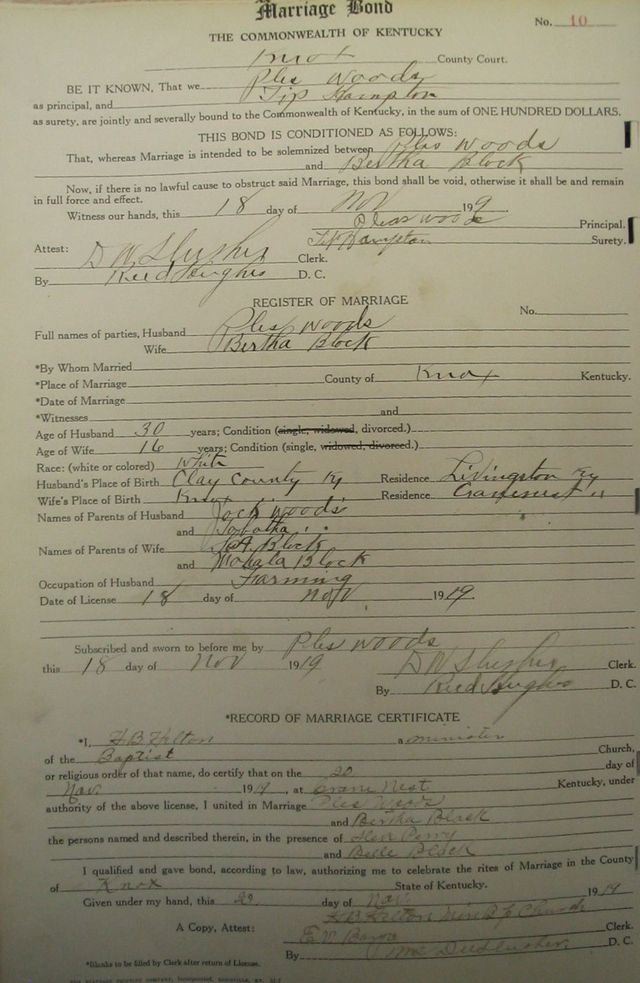 Marriage Bond
No. 10
THE COMMONWEALTH OF KENTUCKY
Knox County Court.
BE IT KNOWN, That we Ples Woods
as principal, and Tip Hampton
as surety, are jointly and severally bound to the Commonwealth of Kentucky, in the sum of ONE HUNDRED DOLLARS.
THIS BOND IS CONDITIONED AS FOLLOWS:
That, whereas Marriage is intended to be solemnized between Ples Woods
and Bertha Block
Now, if there is no lawful cause to obstruct said Marriage, this bond shall be void, otherwise it shall be and remain
in full force and effect.
Witness our hands, this 18 day of Nov 19
Ples Woods Principal.
Hampton Surety.
Attest: D W Slusher Clerk.
By Reed Hughes D. C.
REGISTER OF MARRIAGE
No.
Full names of parties, Husband Ples Woods
Wife Bertha Block
*By Whom Married
*Place of Marriage County of Knox Kentucky.
*Date of Marriage
*Witnesses and
Age of Husband 30 years; Condition (single, widowed, divorced.)
Age of Wife 16 years; Condition (single, widowed, divorced.)
Race: (white or colored) White
Husband's Place of Birth Clay County Ky Residence Livingston Ky
Wife's Place of Birth Knox " " Residence "
Names of Parents of Husband Jack Woods
and "
Names of Parents of Wife Block
and Mahala Block
Occupation of Husband Farming
Date of License 18 day of Nov 1919.
Subscribed and sworn to before me by Ples Woods
this 18 day of Nov 1919 D W Slusher Clerk.
By Reed Hughes D. C.
*RECORD OF MARRIAGE CERTIFICATE
*I, H B Helton a minister
of the Baptist Church,
or religious order of that name, do certify that on the 20 day of
Nov. 1919, at Crane Nest Kentucky, under
authority of the above license, I united in Marriage Ples Woods
and Bertha Black
the persons named and described therein, in the presence of Perry
and Belle Black
I qualified and gave bond, according to law, authorizing me to celebrate the rites of Marriage in the County
of Knox State of Kentucky.
Given under my hand, this 20 day of Nov. 1919
H B Helton Church
A Copy, Attest: Clerk.
By D. C.
*Blanks to be filled by Clerk after return of License.